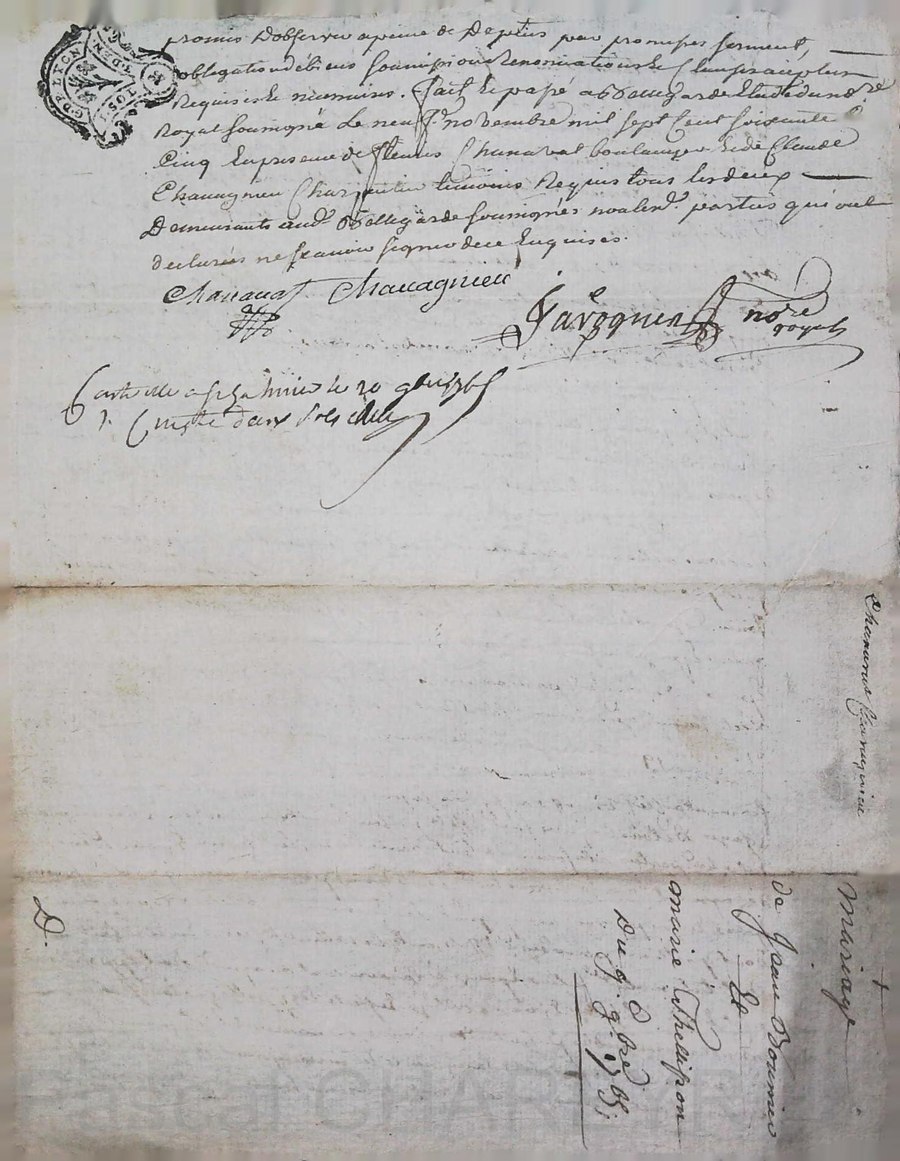 promis d'observer a peine de Deptus par promesses serment,
obligation de biens soumissions Renonciations et Clauses
Requises et necessaires. Fait et passé a Bellegarde Etude du nore
Royal soussigné Le neuf novembre mil sept Cent soixante
Cinq En presence de fleury Chanavat boulanger et de Claude
Chavagnieu Charpentier temoins Requis tous les deux
Demeurants aud. Bellegarde soussignés non lesd. parties qui ont
declarées ne scavoir signer de ce Enquises.
Chanavat Chavagnieu
nore
royal
le 20
Chanavat Chavagnieu
Mariage
de Jean
Et
marie Thellisson
Du 9. 9bre 1765
D.
G. DE LYON